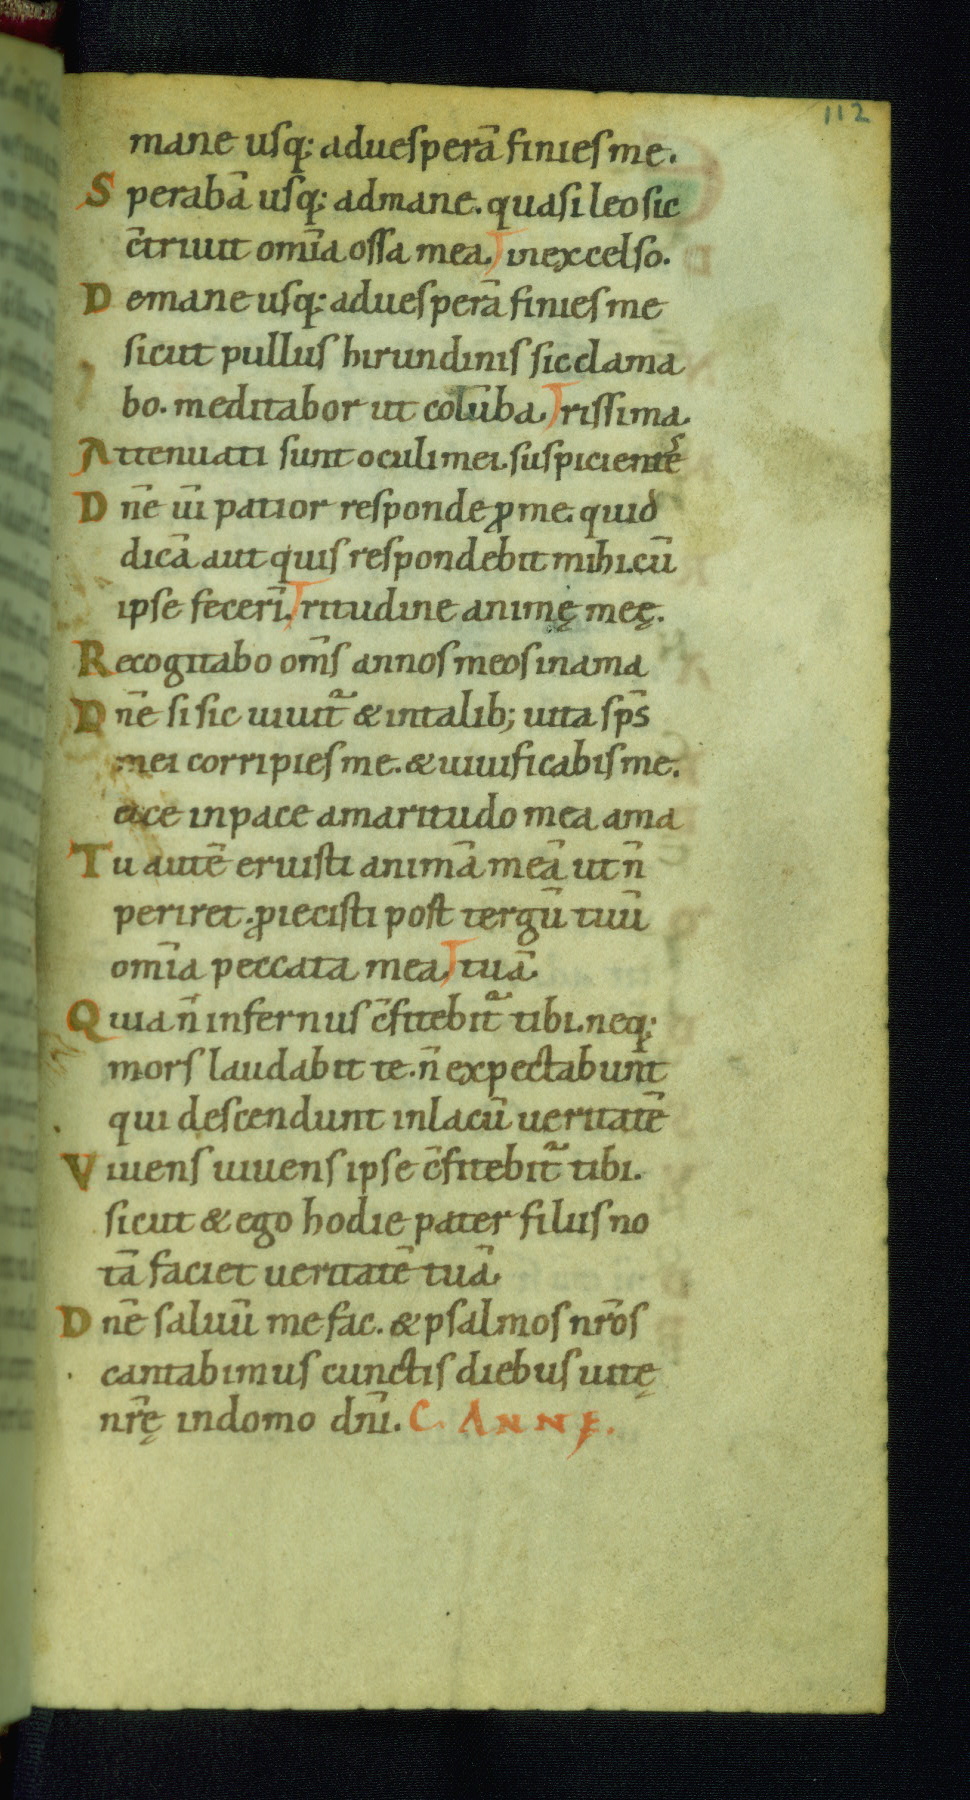 112
mane usq; aduesperā finies me.
Sperabā usq; admane. quasi leo sic
c̄triuit om̄ia ossa mea. in excelso.
Demane usq; aduesperā finies me
sicut pullus hirundinis sic clama
bo. meditabor ut colūba. rissima
Attenuati sunt oculi mei. suspicienteᷤ
Dn̄e uī patior responde ꝓ me. quid
dicā aut quis respondebit mihi. cū
ipse fecerī. ritudine animę meę.
Recogitabo om̄s annos meos in ama
Dn̄e si sic uiuit᷑ & in talib; uita sp̄s
mei corripies me. & uiuificabis me.
ecce in pace amaritudo mea ama
Tu autē eruisti animā meā ut n̄
periret. ꝓiecisti post tergū tuū
om̄ia peccata mea. tuā.
Quia n̄ infernus c̄fitebit᷑ tibi. neq;
mors laudabit te. n̄ expectabunt
qui descendunt in lacū ueritatē
Viuens uiuens ipse c̄fitebit᷑ tibi.
sicut & ego hodie pater filiis no
tā faciet ueritatē tuā.
Dn̄e saluū me fac. & psalmos nr̄os
cantabimus cunctis diebus uitę
nr̄ę in domo dn̄i. C. ANNĘ.